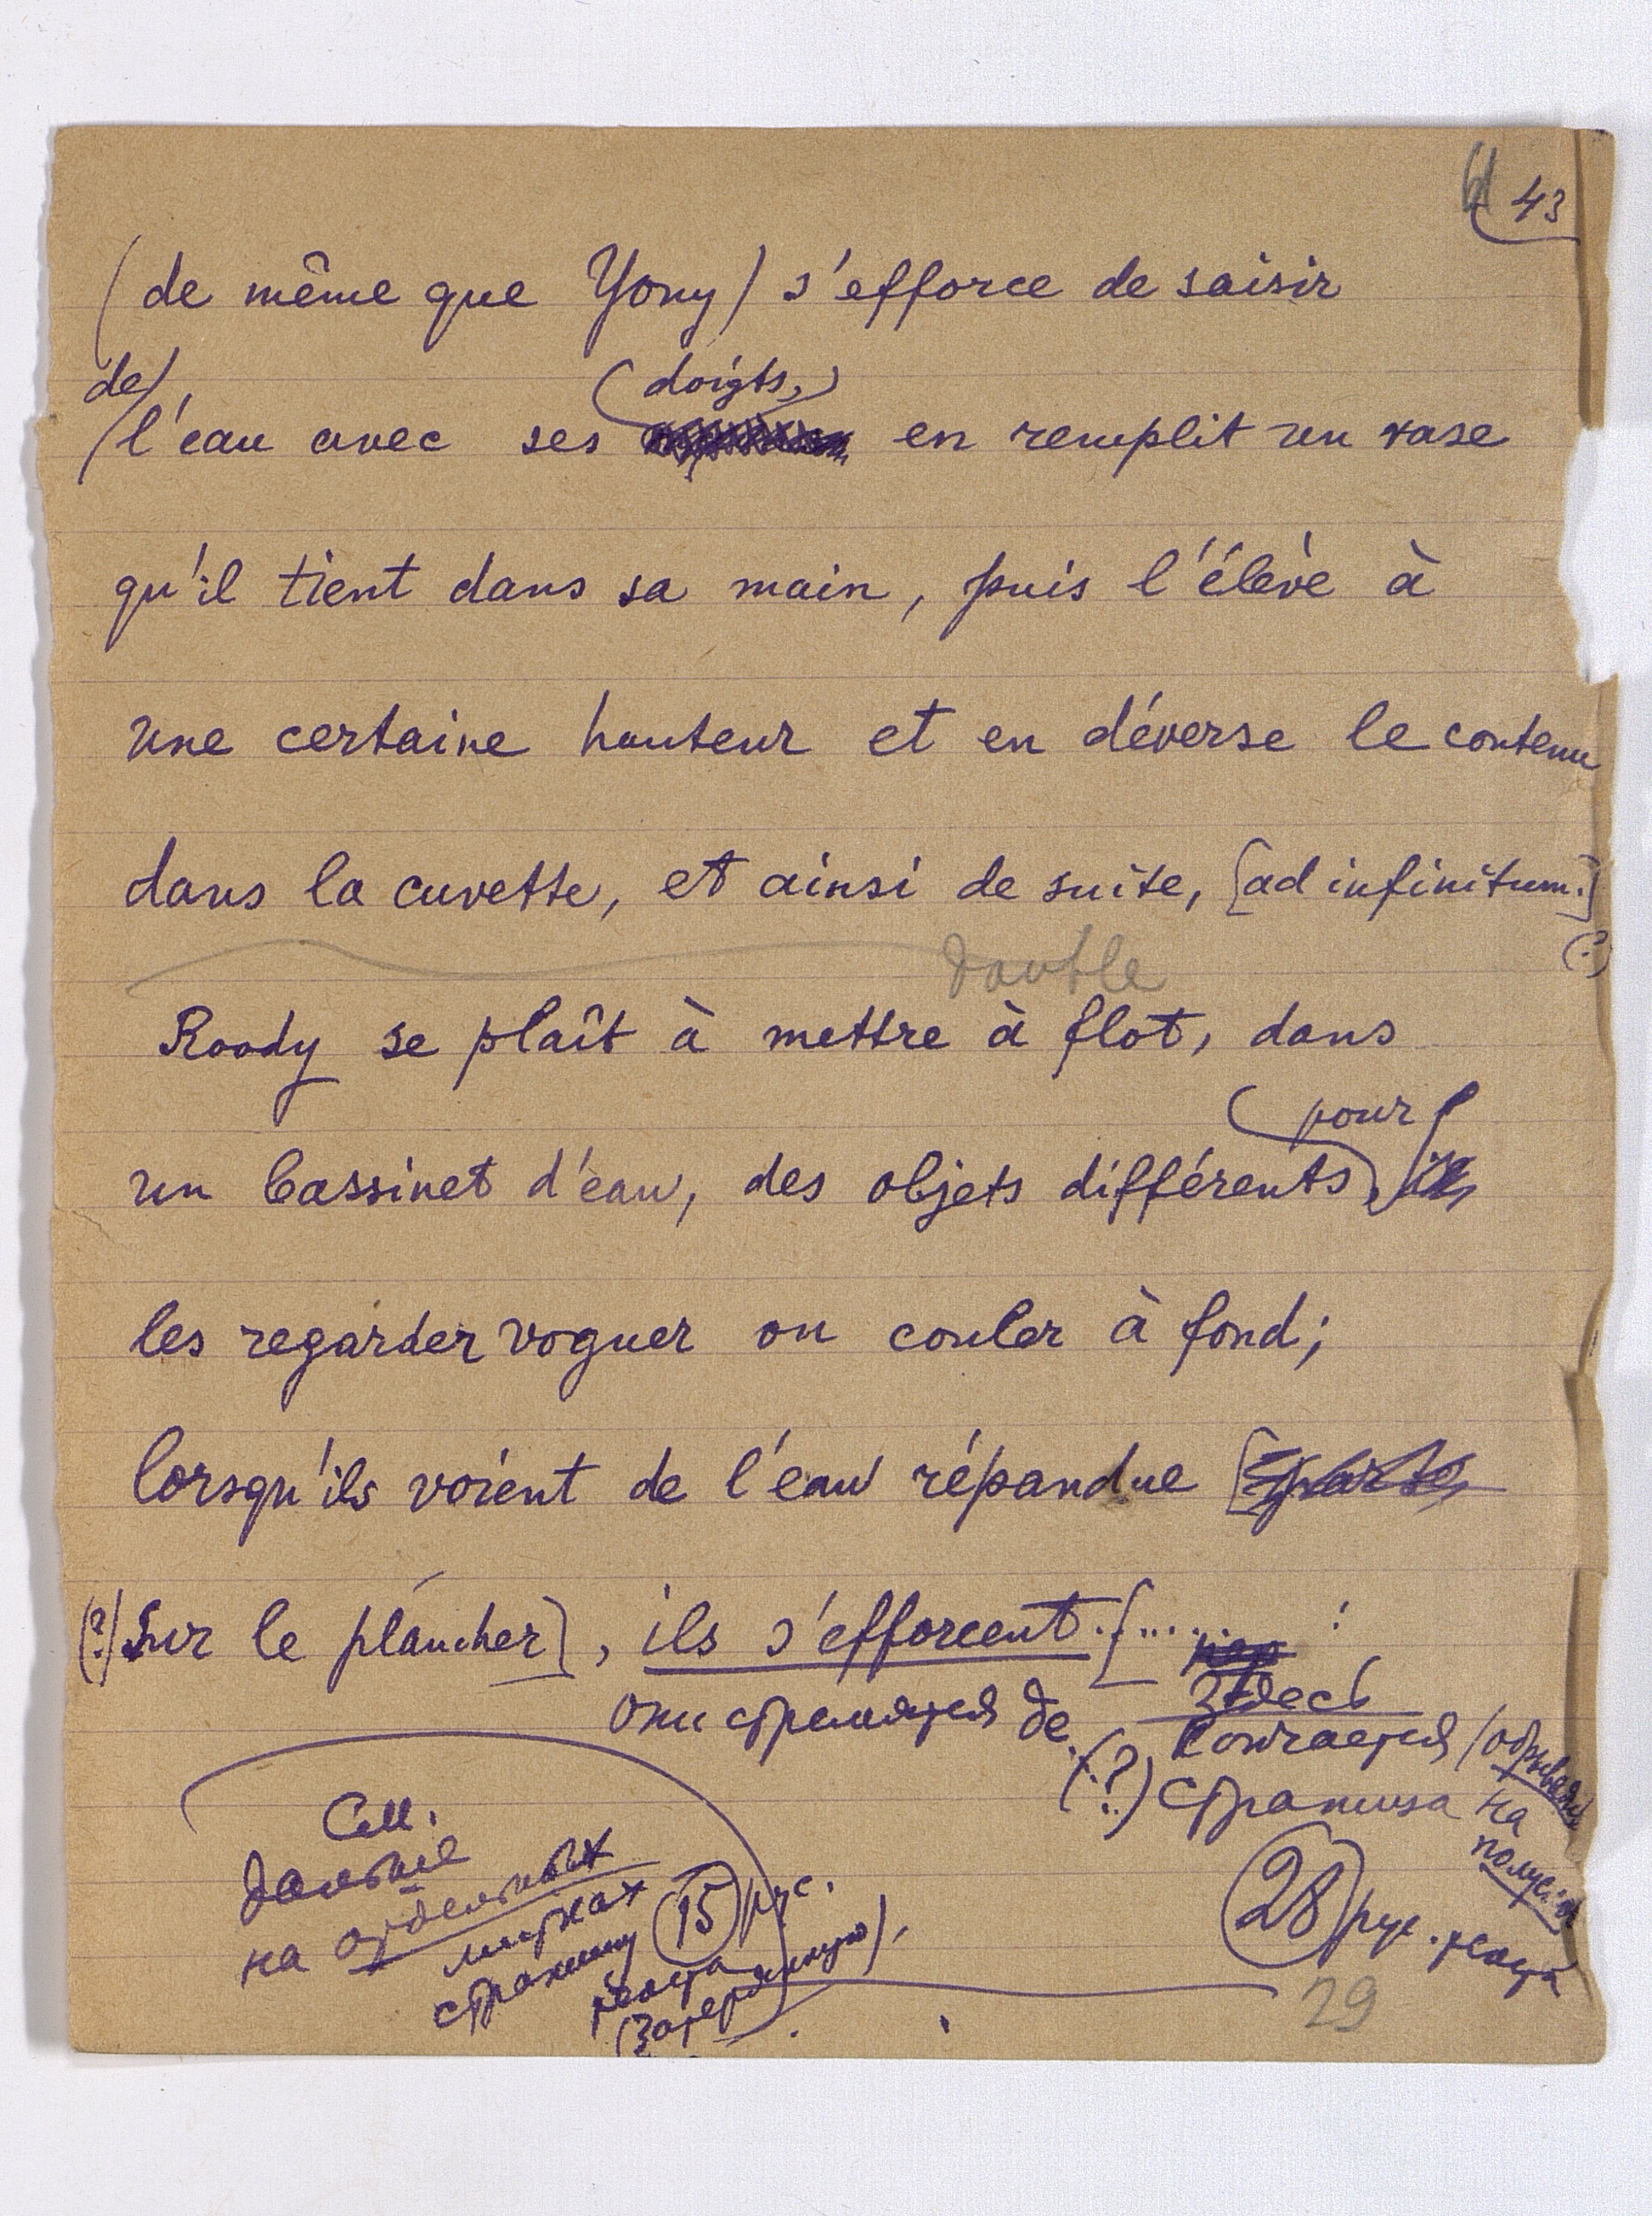 43
(de même que Yony) s'efforce de saisir
de/ (doigts,)
l'eau avec ses en remplit un vase
qu'il tient dans sa main, puis l'élève à
une certaine hauteur et en déverse le contenu
dans la cuvette, et ainsi de suite, [ad infinitum.]
(?)
double
Roody se plaît à mettre à flot, dans
pour
un bassinet d'eau, des objets différents,
les regarder voguer ou couler à fond;
lorsqu'ils voient de l'eau répandue
(?) Sur le plancher], ils s'efforcent. [.....
они стремятся de
Здесь
кончается (обрываясь
(?) страница на
полуслове
28 рук. текста
29
См.
дальше
на отдельных
листках
страницу 15 рус.
текста
(затерянную).